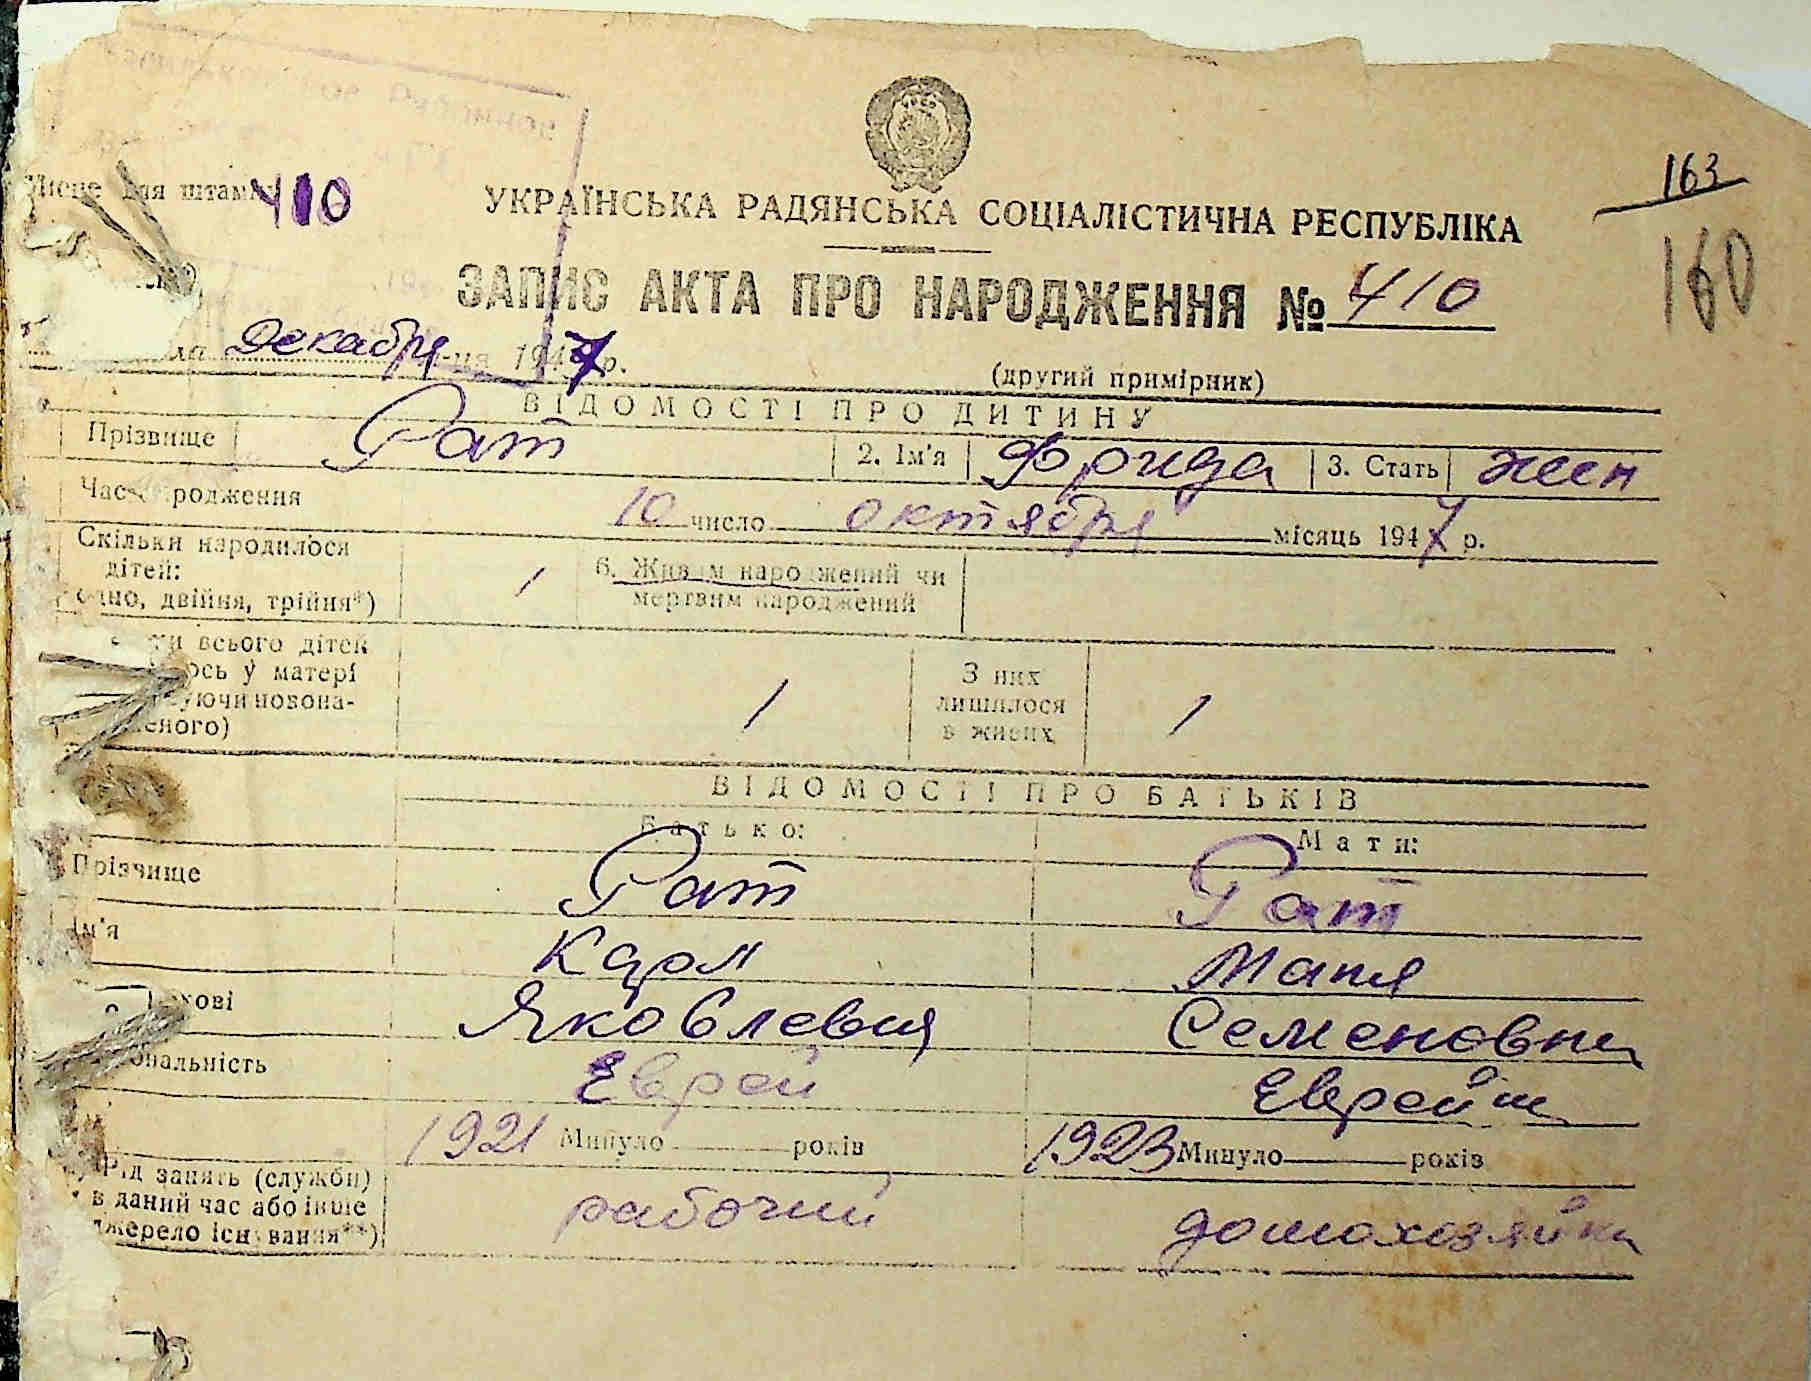 163
Місце для штампа 410
УКРАЇНСЬКА РАДЯНСЬКА СОЦІАЛІСТИЧНА РЕСПУБЛІКА
160
ЗАПИС АКТА ПРО НАРОДЖЕННЯ № 410
Декабря 1947 р.
(другий примірник)
ВІДОМОСТІ ПРО ДИТИНУ
Прізвище Рат 2. Ім'я Фрида 3. Стать жен
Час народження 10 число октября місяць 1947 р.
Скільки народилося
дітей:
одно, двійня, трійня*) 1 6. Живим народжений чи
мертвим народжений
всього дітей
ось у матері
уючи новона-
еного) 1 З них
лишилося
в живих 1
ВІДОМОСТІ ПРО БАТЬКІВ
Батько: Мати:
Прізвище Рат Рат
Ім'я Карл Маня
кові Яковлевич Семеновна
ональність Еврей Еврейка
1921 Минуло років 1923 Минуло років
Рід занять (служби)
в даний час або інше
джерело існування**) рабочий домохозяйка